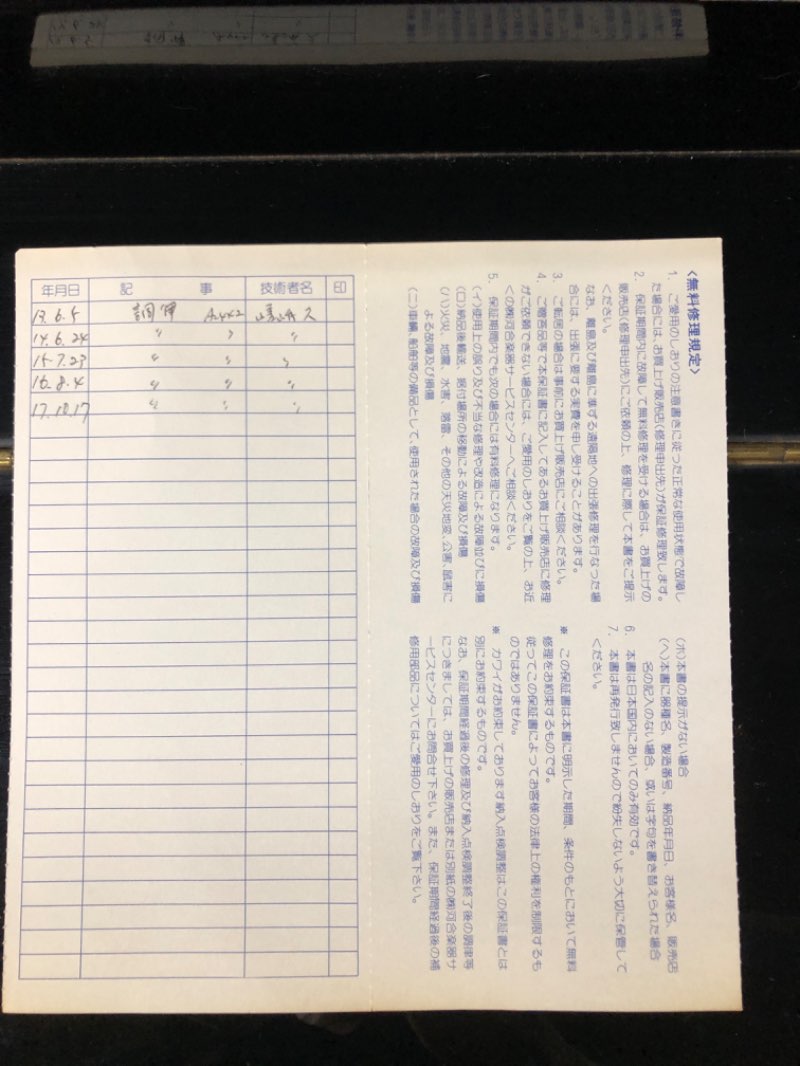 年月日 記 事 技術者名 印
13.6.5 調律 A442
14.6.24 〃 〃 〃
15.7.23 〃 〃 〃
16.8.4 〃 〃 〃
17.10.17 〃 〃 〃
〈無料修理規定〉
1. ご愛用のしおりの注意書きに従った正常な使用状態で故障し
た場合には、お買上げ販売店(修理申出先)が保証修理致します。
2. 保証期間内に故障して無料修理を受ける場合は、お買上げの
販売店(修理申出先)にご依頼の上、修理に際して本書をご提示
ください。
なお、離島及び離島に準ずる遠隔地への出張修理を行なった場
合には、出張に要する実費を申し受けることがあります。
3. ご転居の場合は事前にお買上げ販売店にご相談ください。
4. ご贈答品等で本保証書に記入してあるお買上げ販売店に修理
がご依頼できない場合には、ご愛用のしおりをご覧の上、お近
くの㈱河合楽器サービスセンターへご相談ください。
5. 保証期間内でも次の場合には有料修理になります。
(イ)使用上の誤り及び不当な修理や改造による故障並びに損傷
(ロ)納品後輸送、据付場所の移動による故障及び損傷
(ハ)火災、地震、水害、落雷、その他の天災地変、公害、鼠害に
よる故障及び損傷
(ニ)車輛、船舶等の備品として、使用された場合の故障及び損傷
(ホ)本書の提示がない場合
(ヘ)本書に器種名、製造番号、納品年月日、お客様名、販売店
名の記入のない場合、或いは字句を書き替えられた場合
6. 本書は日本国内においてのみ有効です。
7. 本書は再発行致しませんので紛失しないよう大切に保管して
ください。
※ この保証書は本書に明示した期間、条件のもとにおいて無料
修理をお約束するものです。
従ってこの保証書によってお客様の法律上の権利を制限するも
のではありません。
※ カワイがお約束しております納入点検調整はこの保証書とは
別にお約束するものです。
なお、保証期間経過後の修理及び納入点検調整終了後の調律等
につきましては、お買上げの販売店または別紙の㈱河合楽器サ
ービスセンターにお問合せ下さい。また、保証期間経過後の補
修用部品についてはご愛用のしおりをご覧下さい。